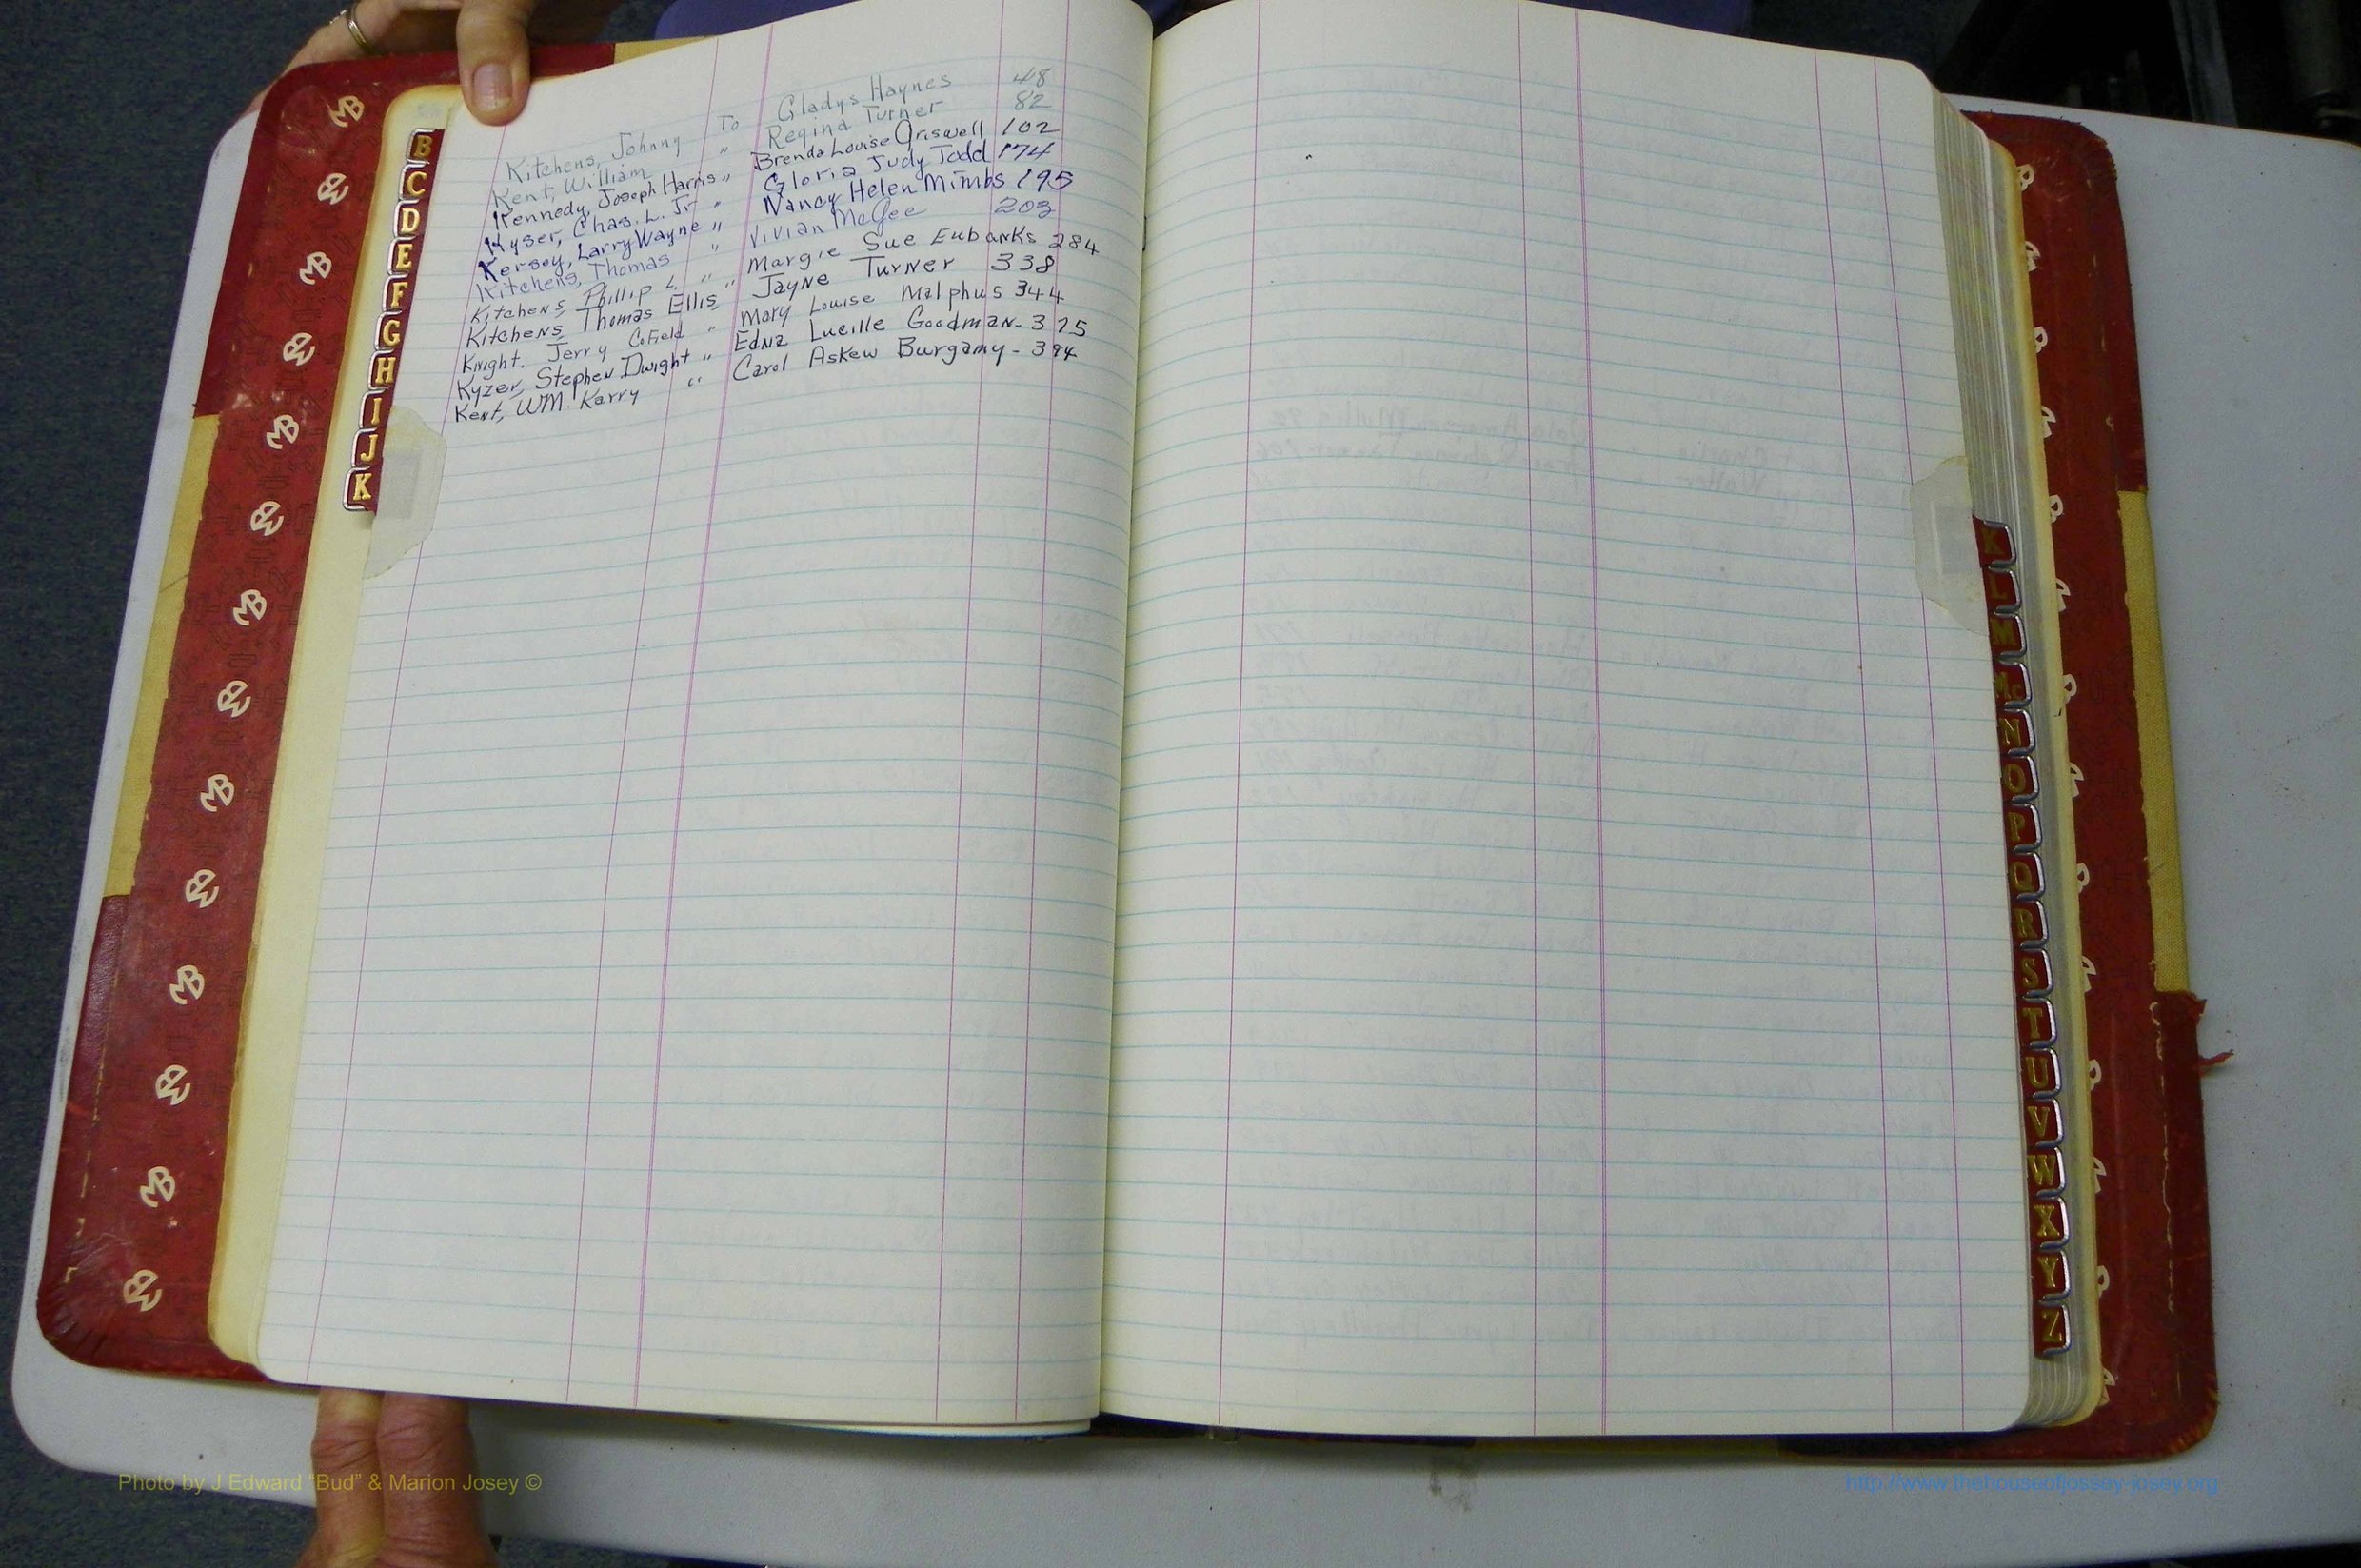 Kitchens, Johnny To Gladys Haynes 48
Kent, William " Regina Turner 82
Kennedy, Joseph Harris " Brenda Louise Griswell 102
Kyser, Chas. L. Jr " Gloria Judy Todd 174
Kersey, Larry Wayne " Nancy Helen Mimbs 195
Kitchens, Thomas " Vivian McGee 203
Kitchens, Phillip L. " Margie Sue Eubanks 284
Kitchens, Thomas Ellis " Jayne Turner 338
Knight. Jerry Cofield " Mary Louise Malphus 344
Kyzer, Stephen Dwight " Edna Lucille Goodman - 375
Kent, WM. Karry " Carol Askew Burgamy - 394
B
C
D
E
F
G
H
I
J
K
K
L
M
Mc
N
O
P
Q
R
S
T
U
V
W
X
Y
Z
Photo by J Edward "Bud" & Marion Josey ©
http://www.thehouseofjossey-josey.org